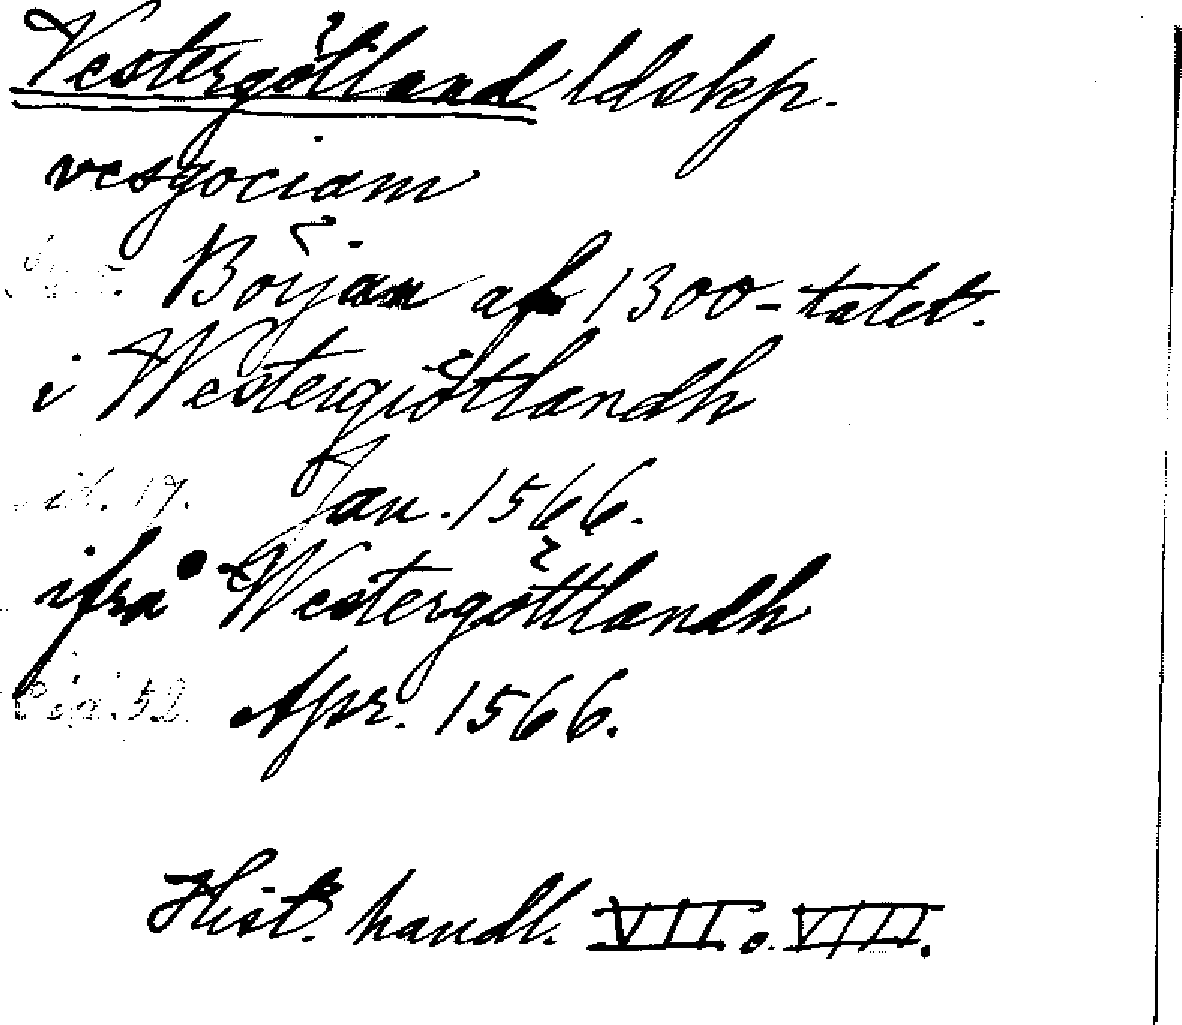 Vestergötland ldskp.
vesgociam
Början af 1300-talet.
i Westergiötlandh
sid. 17. Jan. 1566.
ifrå Westergöttlandh
52. Apr. 1566.
Hist. handl. VII o. VIII.